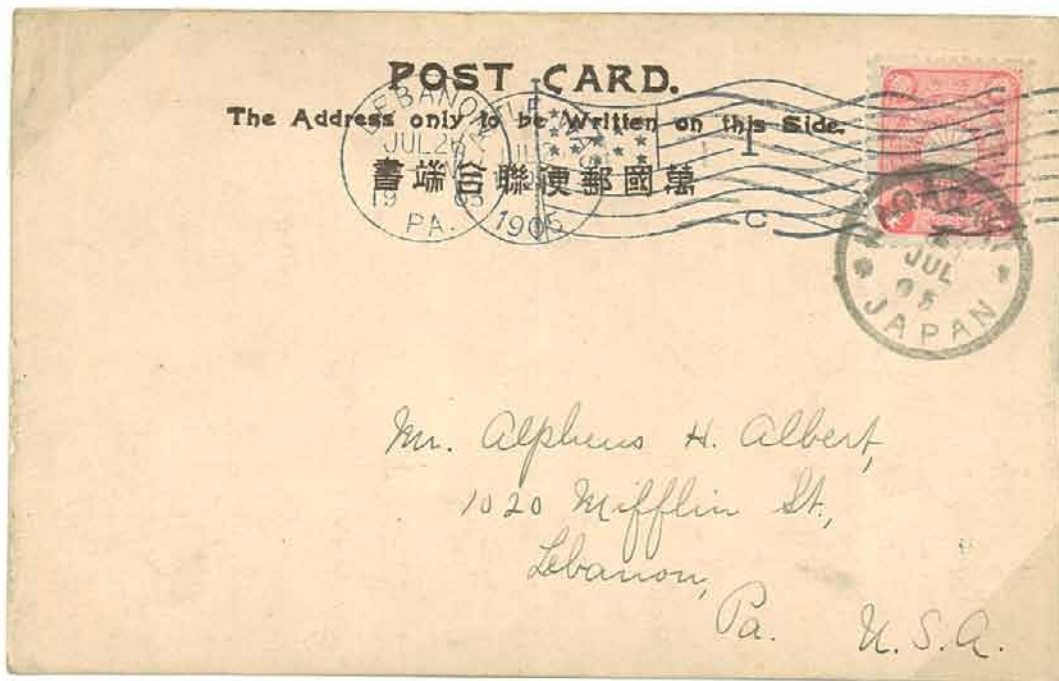 POST CARD.
The Address only to be Written on this Side.
萬國郵便聯合端書
LEBANON
JUL 26
19 05
PA.
1905
1
C
JUL
05
JAPAN
Mr. Alpheus H. Albert,
1020 Mifflin St.,
Lebanon,
Pa. U.S.A.